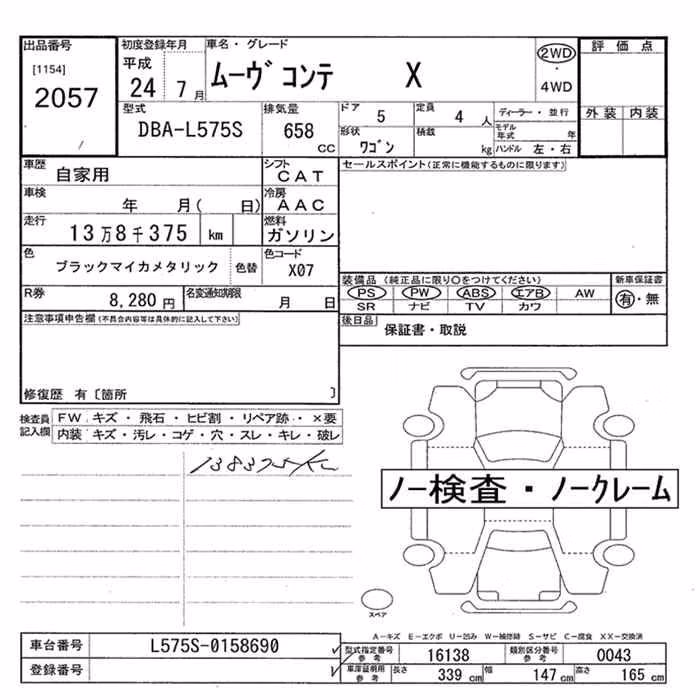 出品番号
[1154]
2057
初度登録年月
平成
24 7月
車名・グレード
ムーヴ コンテ X
2WD
・
4WD
評価点
外装 内装
型式
DBA-L575S
排気量
658
CC
ドア 5
定員 4 人
ディーラー・並行
形状 ワゴン
積載 kg
モデル年式 年
ハンドル 左・右
車歴 自家用
シフト CAT
車検 年 月( 日)
冷房 AAC
走行 13万8千375 km
燃料 ガソリン
色 ブラックマイカメタリック 色替
色コード X07
R券 8,280円
名変通知期限 月 日
セールスポイント(正常に機能するものに限ります)
装備品(純正品に限り○をつけてください)
新車保証書
PS PW ABS エアB AW
有・無
SR ナビ TV カワ
後日品 保証書・取説
注意事項申告欄(不具合内容等は具体的に記入して下さい)
修復歴 有〔箇所 〕
検査員記入欄
FW キズ・飛石・ヒビ割・リペア跡・×要
内装 キズ・汚レ・コゲ・穴・スレ・キレ・破レ
138375km
ノー検査・ノークレーム
スペア
A−キズ E−エクボ U−凹み W−補修跡 S−サビ C−腐食 XX−交換済
車台番号 L575S-0158690
登録番号
型式指定番号 参考 16138
類別区分番号 参考 0043
車庫証明用 参考 長さ 339cm 幅 147cm 高さ 165cm